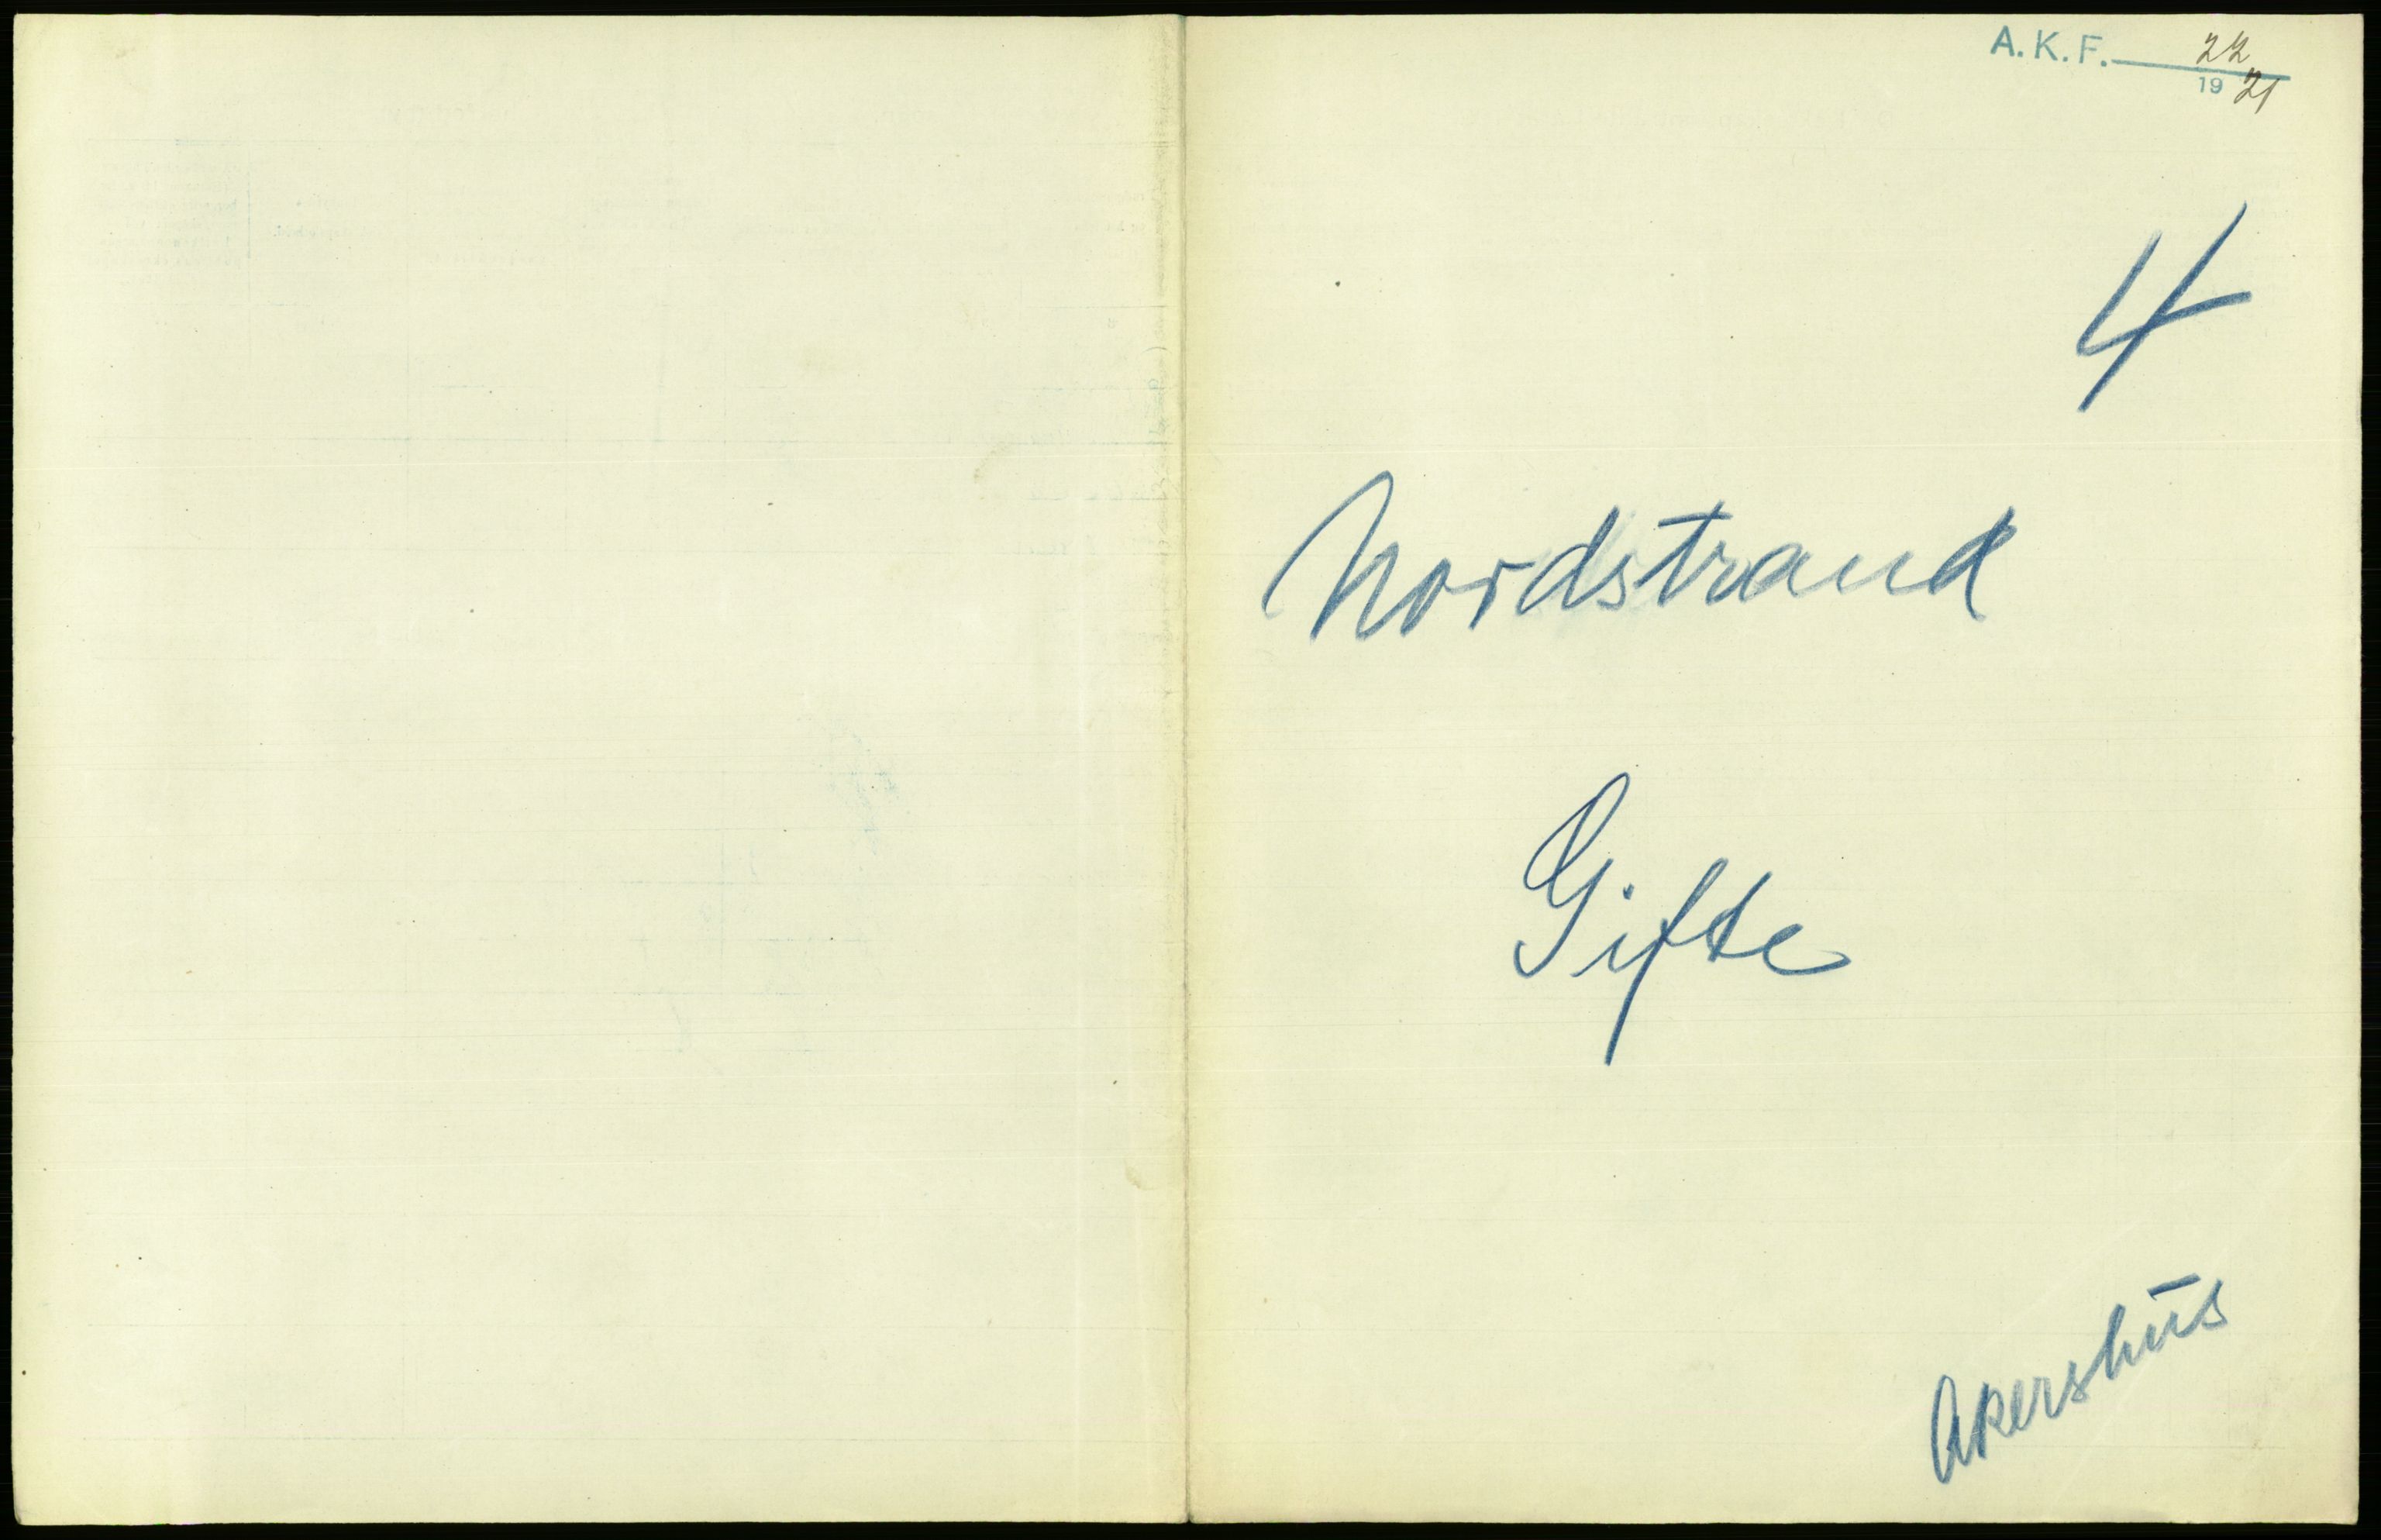 A. K. F. 22
19 21
4
Nordstrand
Gifte
Akershus